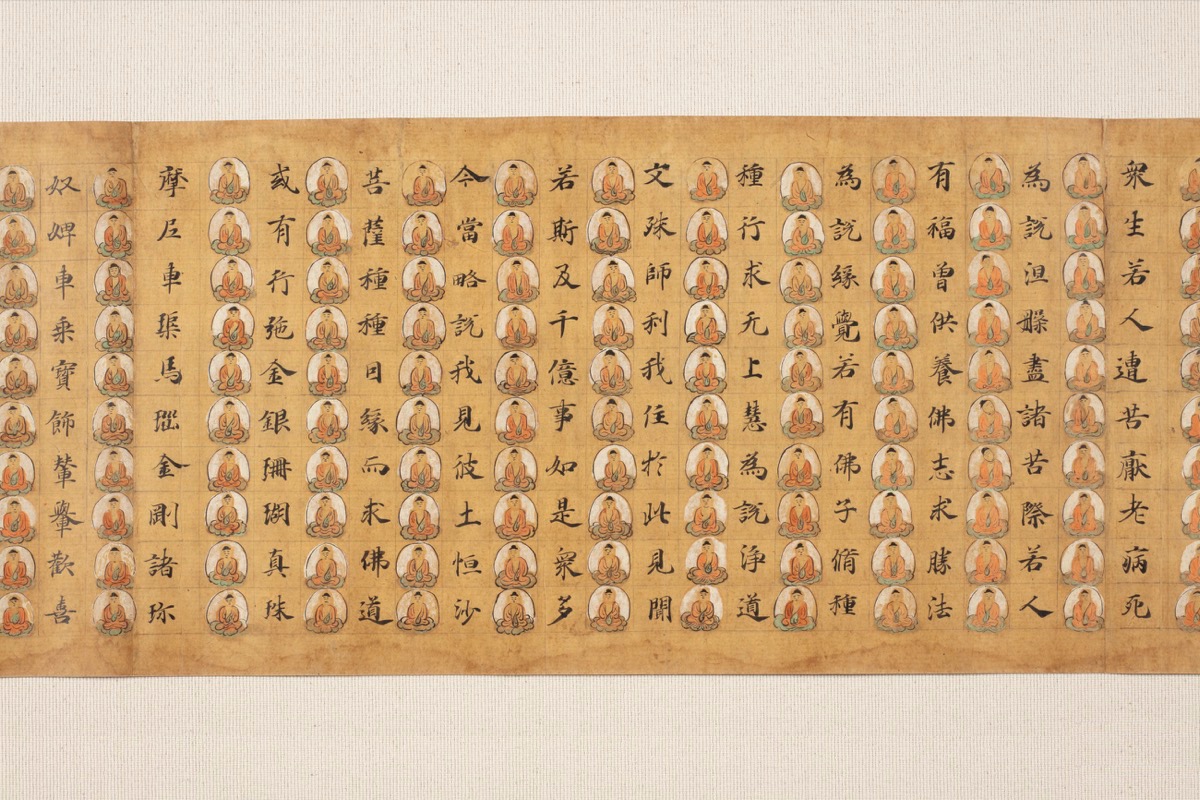 衆生若人遭苦厭老病死
為說涅槃盡諸苦際若人
有福曾供養佛志求勝法
為說緣覺若有佛子脩種
種行求无上慧為說淨道
文殊師利我住於此見聞
若斯及千億事如是衆多
今當略說我見彼土恒沙
菩薩種種因緣而求佛道
或有行施金銀珊瑚真珠
摩尼車璖馬瑙金剛諸珎
奴婢車乘寶飾輦轝歡喜